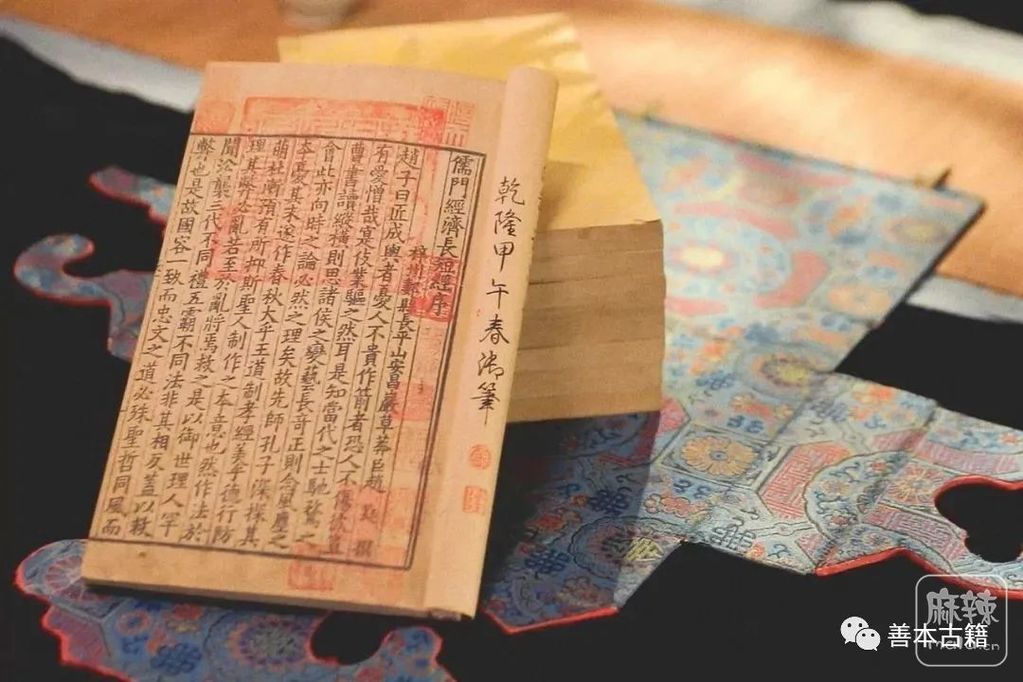 乾隆甲午春御筆
儒門經濟長短經序
梓州郪縣長平山安昌巖草莽臣趙 蕤 撰
趙子曰匠成輿者憂人不貴作箭者恐人不傷彼豈
有愛憎哉寔伎業驅之然耳是知當代之士馳騖之
曹書讀縱橫則思諸侯之變藝長奇正則念風塵之
會此亦向時之論必然之理矣故先師孔子深探其
本憂其末遂作春秋大乎王道制孝經美乎德行防
萌杜漸預有所抑斯聖人制作之本意也然作法於
理其弊必亂若至於亂將焉救之是以御世理人罕
聞沿襲三代不同禮五霸不同法非其相反蓋以救
弊也是故國容一致而忠文之道必殊聖哲同風而
善本古籍
麻辣